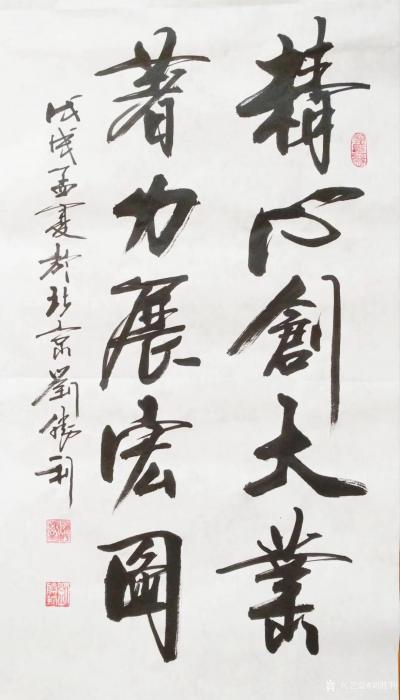 精心創大業
著力展宏圖
戊戌孟夏於北京劉勝利